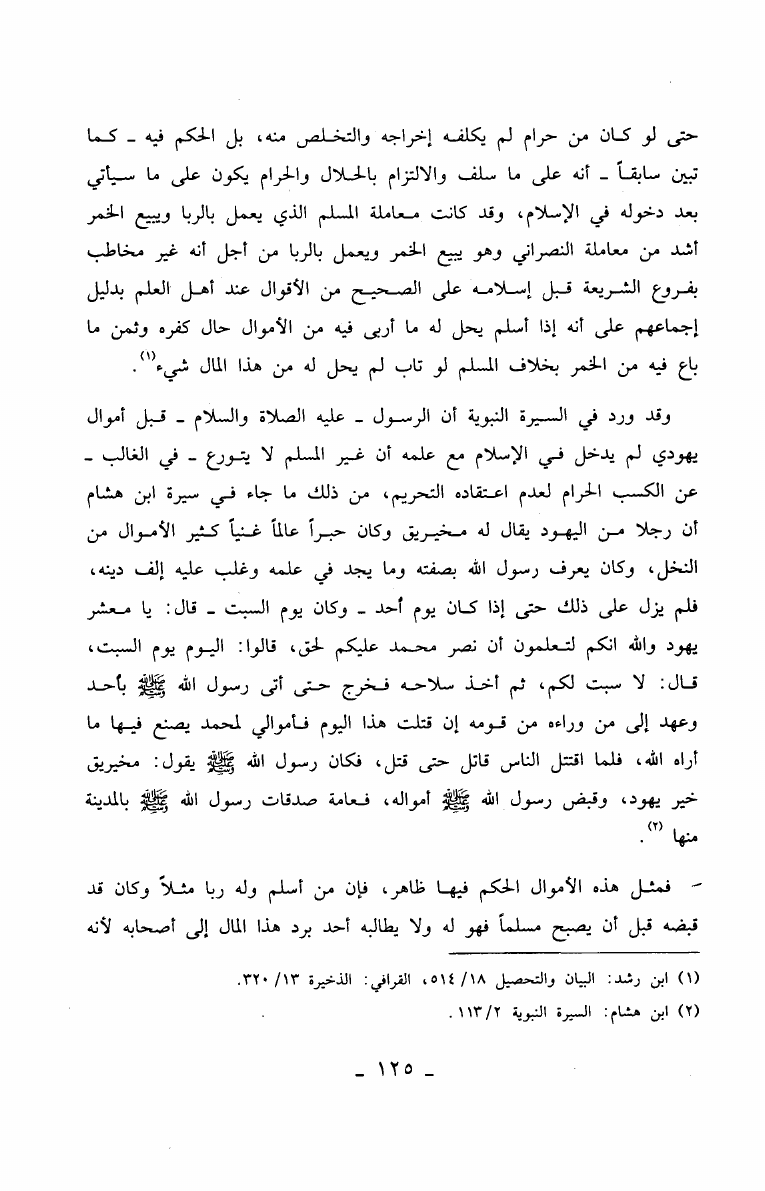 حتى لو كان من حرام لم يكلفه إخراجه والتخلص منه، بل الحكم فيه ـ كما
تبين سابقاً ـ أنه على ما سلف والالتزام بالحلال والحرام يكون على ما سيأتي
بعد دخوله في الإسلام، وقد كانت معاملة المسلم الذي يعمل بالربا ويبيع الخمر
أشد من معاملة النصراني وهو يبيع الخمر ويعمل بالربا من أجل أنه غير مخاطب
بفروع الشريعة قبل إسلامه على الصحيح من الأقوال عند أهل العلم بدليل
إجماعهم على أنه إذا أسلم يحل له ما أربى فيه من الأموال حال كفره وثمن ما
باع فيه من الخمر بخلاف المسلم لو تاب لم يحل له من هذا المال شيء(١).
وقد ورد في السيرة النبوية أن الرسول ـ عليه الصلاة والسلام ـ قبل أموال
يهودي لم يدخل في الإسلام مع علمه أن غير المسلم لا يتورع ـ في الغالب ـ
عن الكسب الحرام لعدم اعتقاده التحريم، من ذلك ما جاء في سيرة ابن هشام
أن رجلا من اليهود يقال له مخيريق وكان حبراً عالماً غنياً كثير الأموال من
النخل، وكان يعرف رسول الله بصفته وما يجد في علمه وغلب عليه إلف دينه،
فلم يزل على ذلك حتى إذا كان يوم أحد ـ وكان يوم السبت ـ قال: يا معشر
يهود والله انكم لتعلمون أن نصر محمد عليكم لحق، قالوا: اليوم يوم السبت،
قال: لا سبت لكم، ثم أخذ سلاحه فخرج حتى أتى رسول الله ﷺ بأحد
وعهد إلى من وراءه من قومه إن قتلت هذا اليوم فأموالي لمحمد يصنع فيها ما
أراه الله، فلما اقتتل الناس قاتل حتى قتل، فكان رسول الله ﷺ يقول: مخيريق
خير يهود، وقبض رسول الله ﷺ أمواله، فعامة صدقات رسول الله ﷺ بالمدينة
منها (٢).
- فمثل هذه الأموال الحكم فيها ظاهر، فإن من أسلم وله ربا مثلاً وكان قد
قبضه قبل أن يصبح مسلماً فهو له ولا يطالبه أحد برد هذا المال إلى أصحابه لأنه
(١) ابن رشد: البيان والتحصيل ١٨/ ٥١٤، القرافي: الذخيرة ١٣/ ٣٢٠.
(٢) ابن هشام: السيرة النبوية ٢/ ١١٣.
ـ ١٢٥ ـ